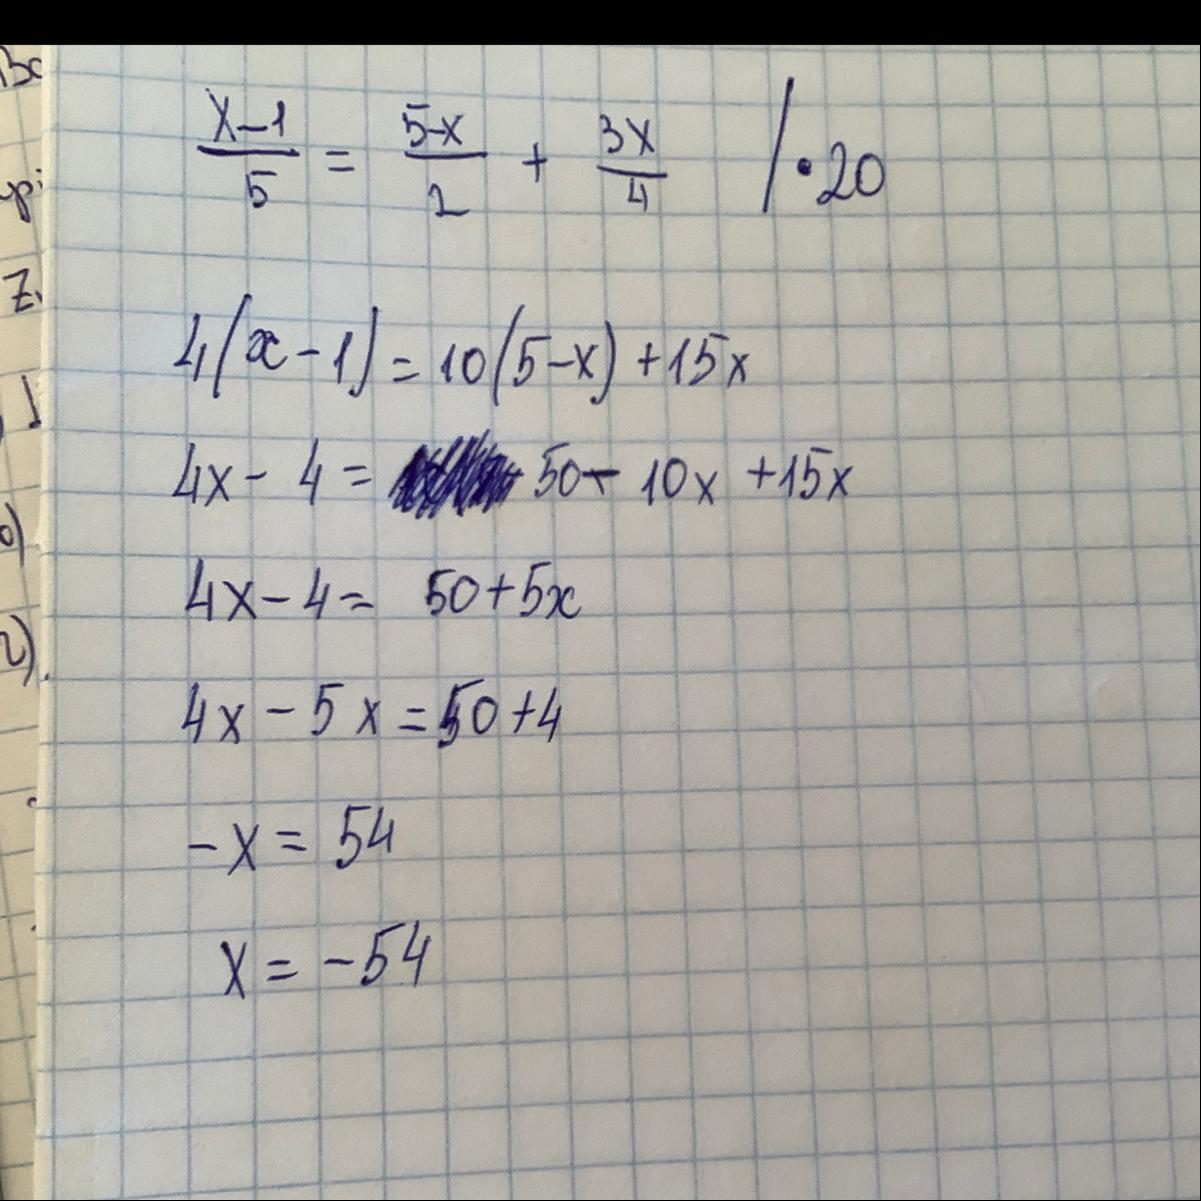 x-1/5 = 5-x/2 + 3x/4 /·20
4(x-1)=10(5-x)+15x
4x-4= 50-10x+15x
4x-4= 50+5x
4x-5x=50+4
-x=54
x=-54